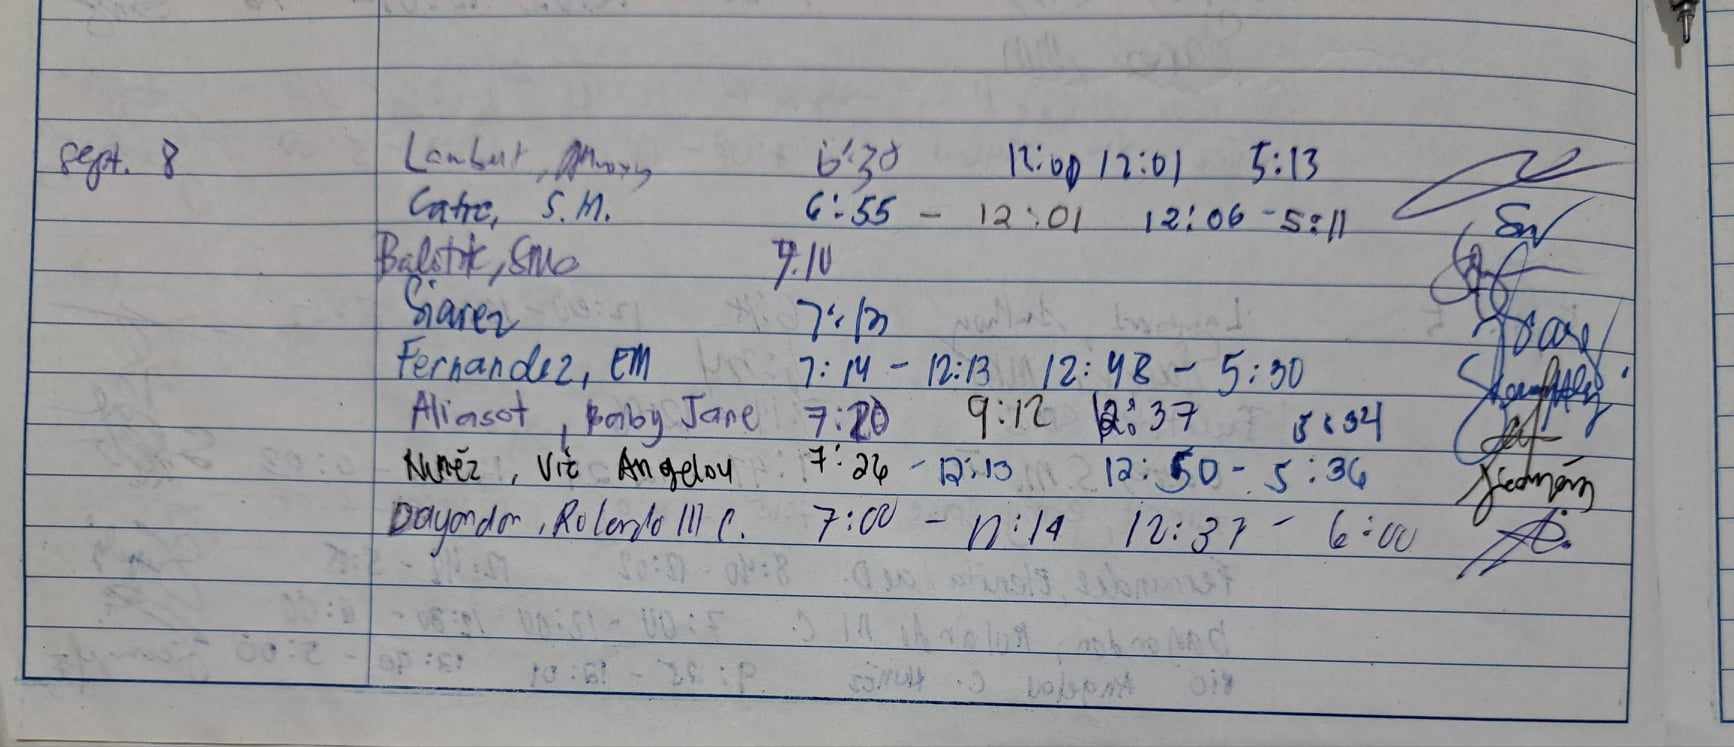 Sept. 8 Lambert, Anthony 6:30 12:00 12:01 5:13
Catre, S.M. 6:55 - 12:01 12:06 - 5:11
Balotik, SMG 7:10
Siarez 7:13
Fernandez, EM 7:14 - 12:13 12:48 - 5:30
Aliasot, Baby Jane 7:20 9:12 12:37 5:34
Nuñez, Vic Angelou 7:26 - 12:13 12:50 - 5:36
Dayondon, Rolando III C. 7:00 - 12:14 12:37 - 6:00